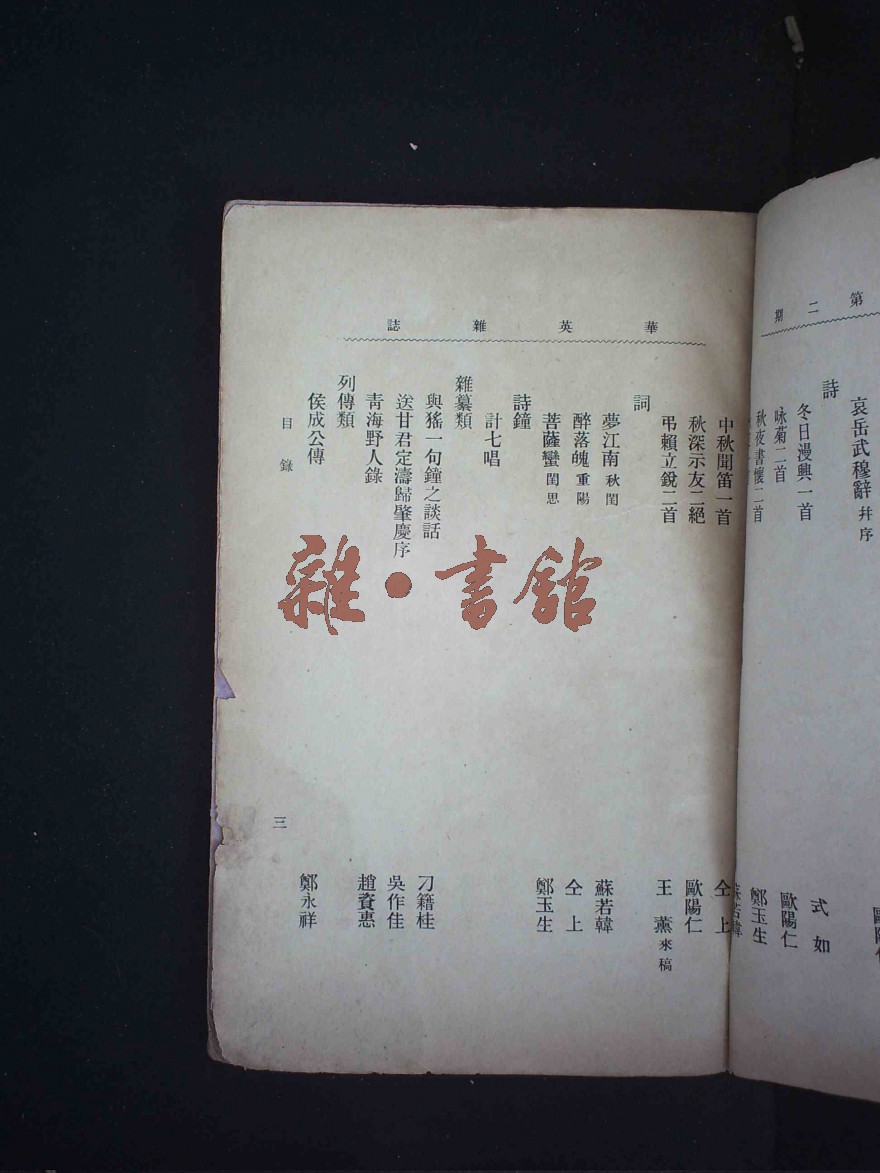 第二期
哀岳武穆辭 幷序
詩
冬日漫興一首 式如
咏菊二首 歐陽仁
秋夜書懷二首 鄭玉生
華英雜誌
中秋聞笛一首 仝上
秋深示友二絕 歐陽仁
弔賴立銳二首 王薰 來稿
詞
夢江南 秋閨 蘇若韓
醉落魄 重陽 仝上
菩薩蠻 閨思 鄭玉生
詩鐘
計七唱
雜纂類
與猺一句鐘之談話 刁籍桂
送甘君定濤歸肇慶序 吳作佳
靑海野人錄 趙賚惠
列傳類
侯成公傳 鄭永祥
目錄
三
雜·書館